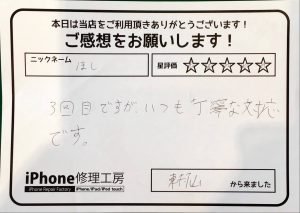 本日は当店をご利用頂きありがとうございます！
ご感想をお願いします！
ニックネーム
ほし
星評価 ☆☆☆☆☆
3回目ですが、いつも丁寧な対応
です。
iPhone修理工房
iPhone Repair Factory iPhone/iPad/iPod touch
新仙 から来ました